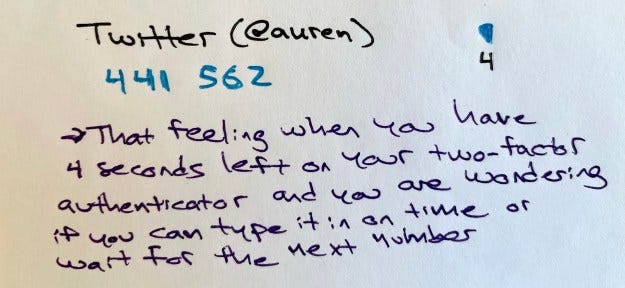 Twitter (@auren)
4
441 562
→ That feeling when you have
4 seconds left on your two-factor
authenticator and you are wondering
if you can type it in on time or
wait for the next number